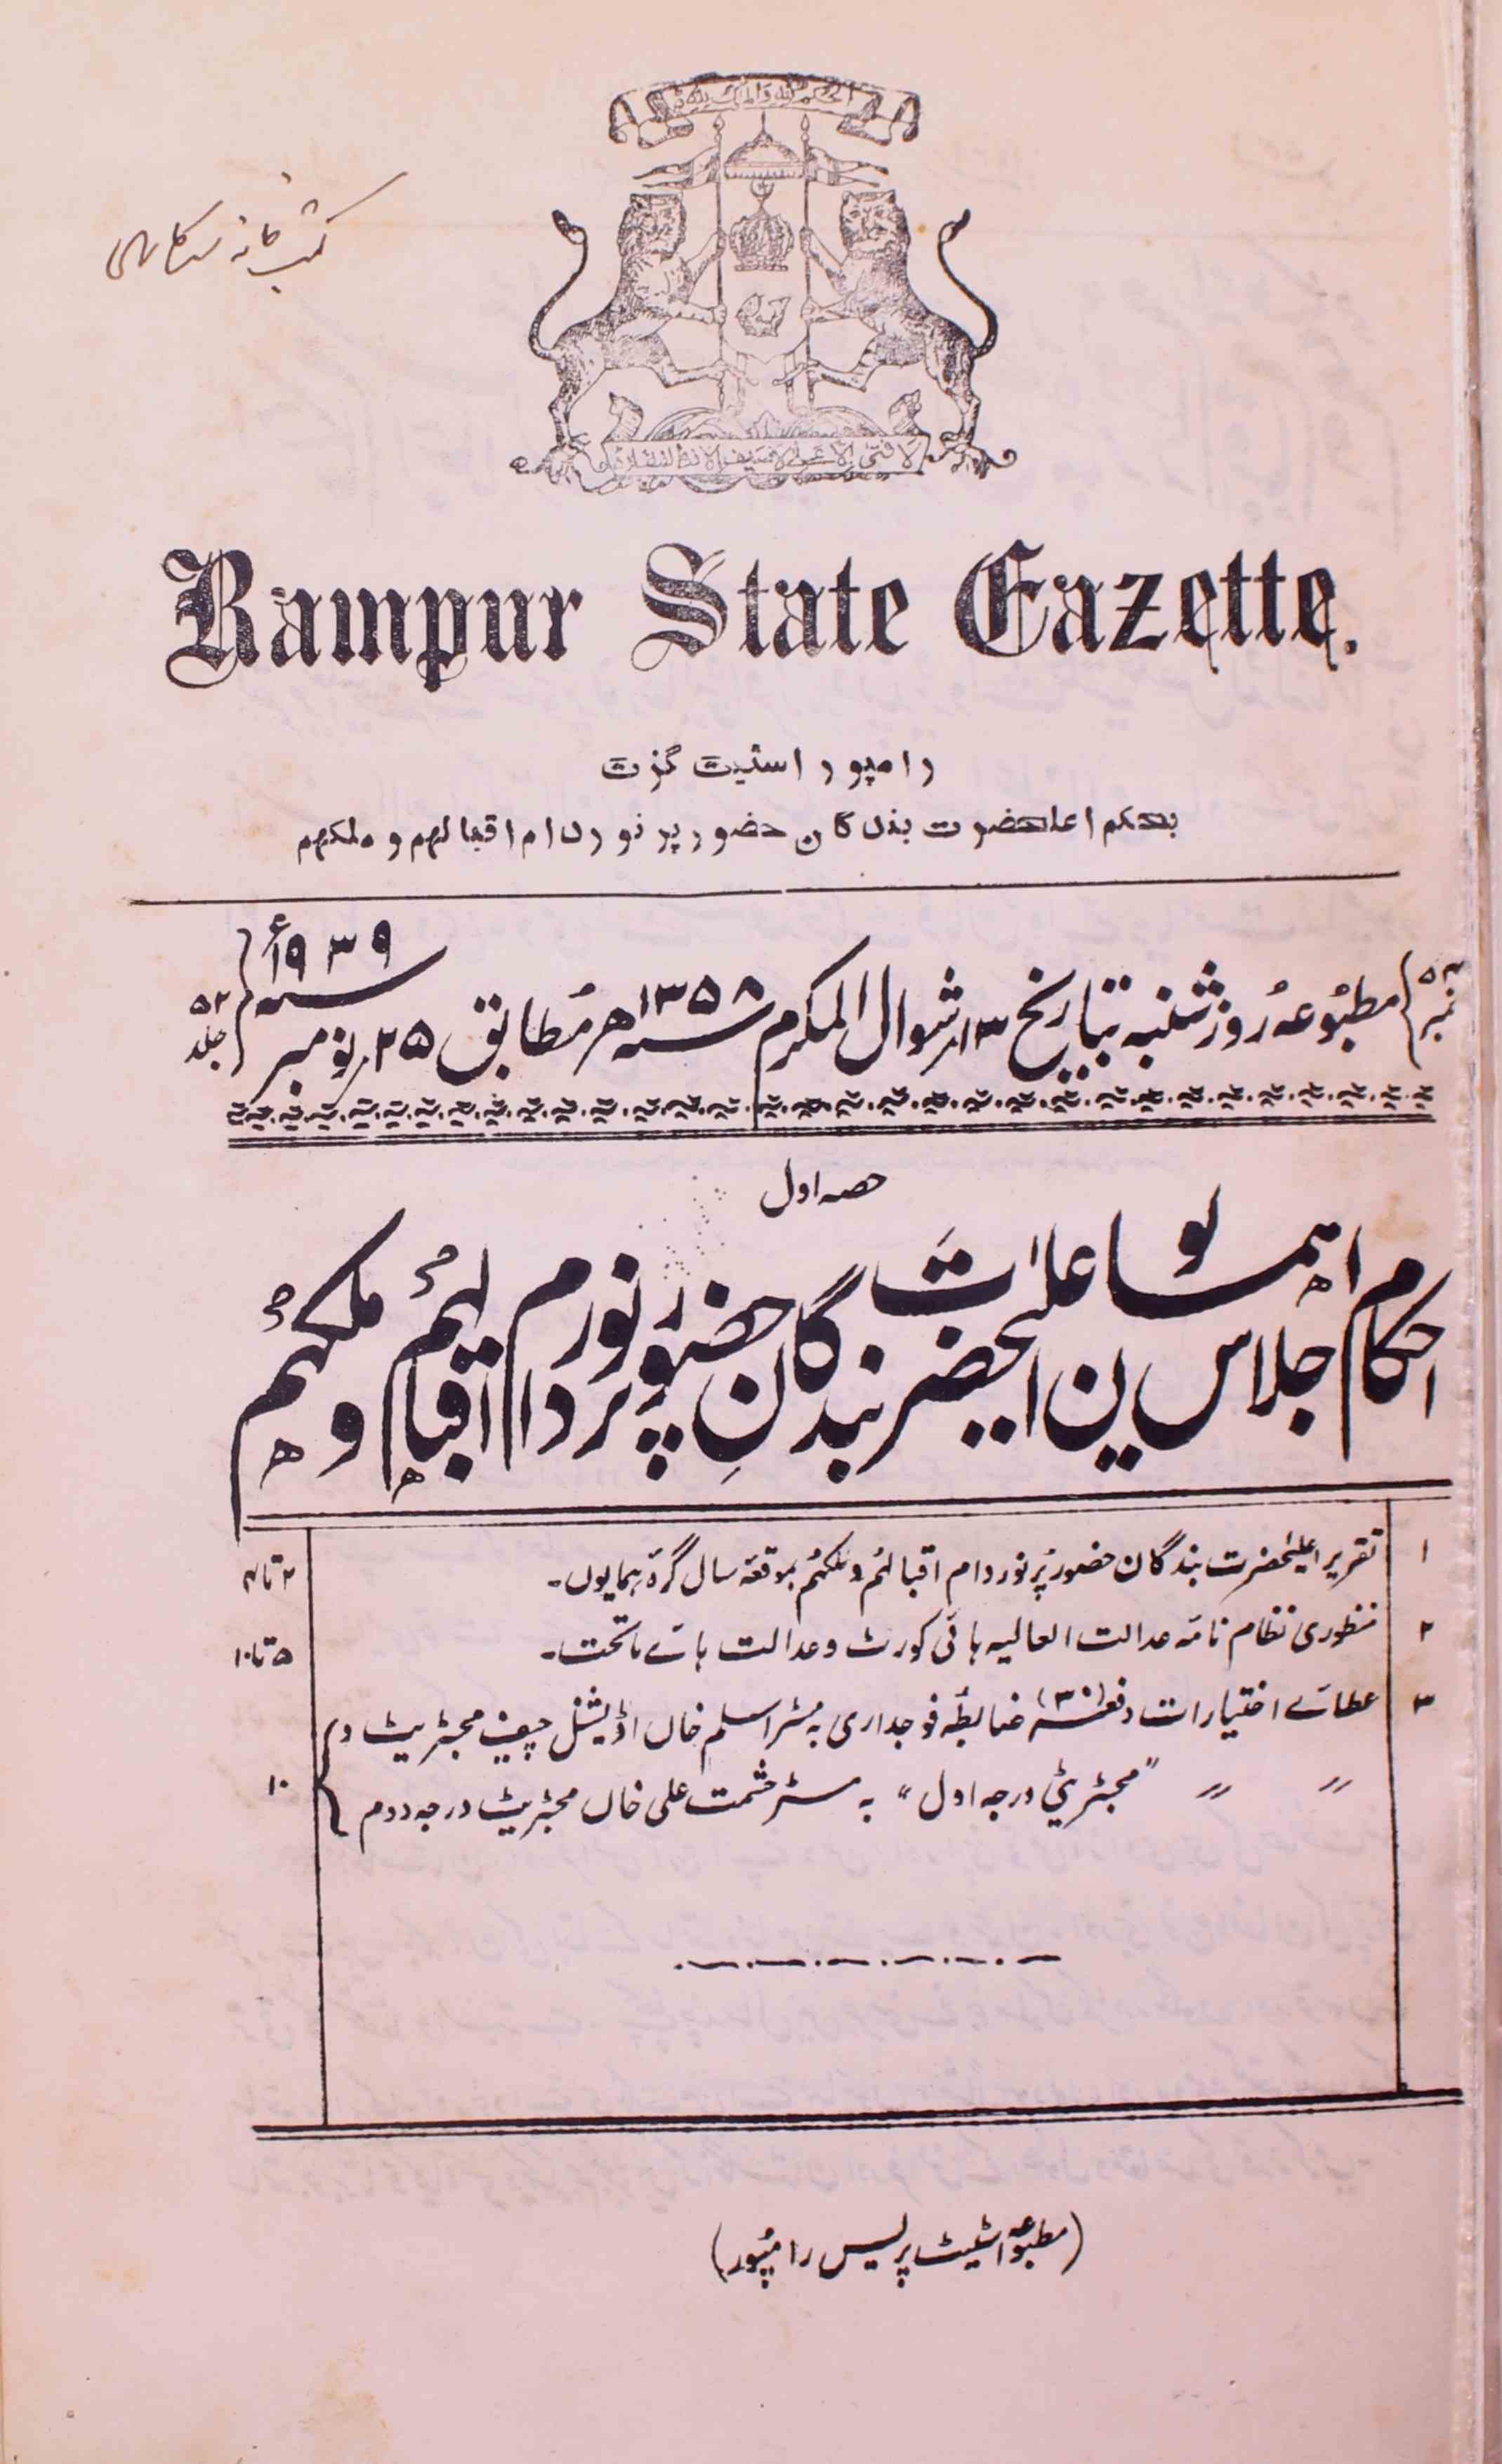 الحکم للہ والملک للہ
کتب خانہ سرکاری
لا فتیٰ الا علی لا سیف الا ذوالفقار
Rampur State Gazette.
رامپور اسٹیٹ گزٹ
بحکم اعلحضرت بندگان حضور پر نور دام اقبالہم و ملکہم
نمبر ۵۲ مطبوعہ روز شنبہ بتاریخ ۱۳ شوال المکرم ۱۳۵۸ سنہ ھ مطابق ۲۵ نومبر سنہ ۱۹۳۹ء جلد ۵۲
حصہ اول
احکام اجلاس ہمایوں اعلیٰحضرت بندگان حضور پرنور دام اقبالہم و ملکہم
۱ تقریر اعلیٰحضرت بندگان حضور پُرنور دام اقبالہم و ملکہم بموقعہ سال گرہ ہمایوں۔ ۲ تا ۴
۲ منظوری نظام نامہ عدالت العالیہ ہائی کورٹ و عدالت ہائے ماتحت۔ ۵ تا ۱۰
۳ عطائے اختیارات دفعہ (۳۰) ضابطہ فوجداری بہ مسٹر اسلم خاں اڈیشنل چیف مجسٹریٹ دوم
〃 〃 "مجسٹریٹی درجہ اول" بہ مسٹر حشمت علی خاں مجسٹریٹ درجہ دوم ۱۰
(مطبوعہ اسٹیٹ پریس رامپور)